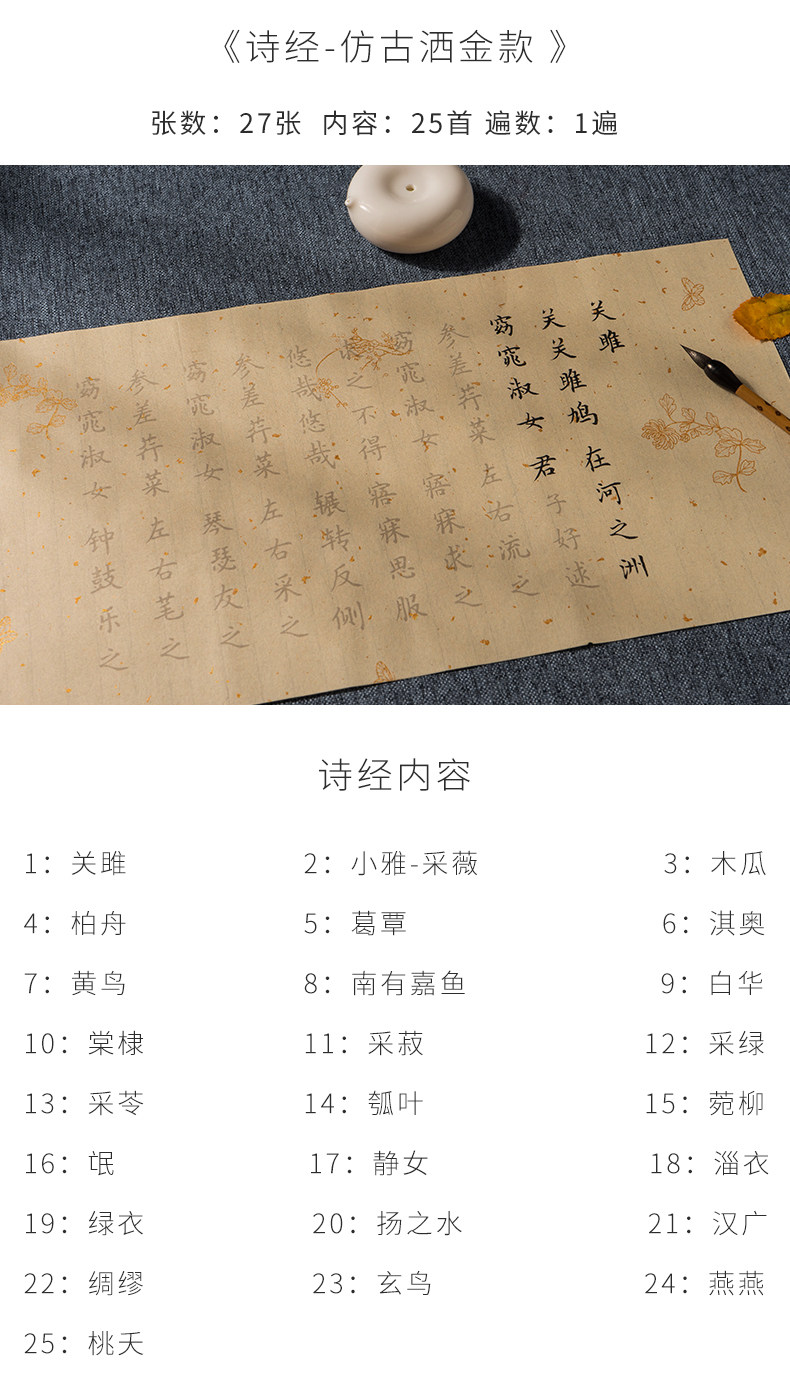 《诗经-仿古洒金款 》
张数：27张 内容：25首 遍数：1遍
关雎
关关雎鸠 在河之洲
窈窕淑女 君子好逑
参差荇菜 左右流之
窈窕淑女 寤寐求之
求之不得 寤寐思服
悠哉悠哉 辗转反侧
参差荇菜 左右采之
窈窕淑女 琴瑟友之
参差荇菜 左右芼之
窈窕淑女 钟鼓乐之
诗经内容
1：关雎 2：小雅-采薇 3：木瓜
4：柏舟 5：葛覃 6：淇奥
7：黄鸟 8：南有嘉鱼 9：白华
10：棠棣 11：采菽 12：采绿
13：采苓 14：瓠叶 15：菀柳
16：氓 17：静女 18：淄衣
19：绿衣 20：扬之水 21：汉广
22：绸缪 23：玄鸟 24：燕燕
25：桃夭